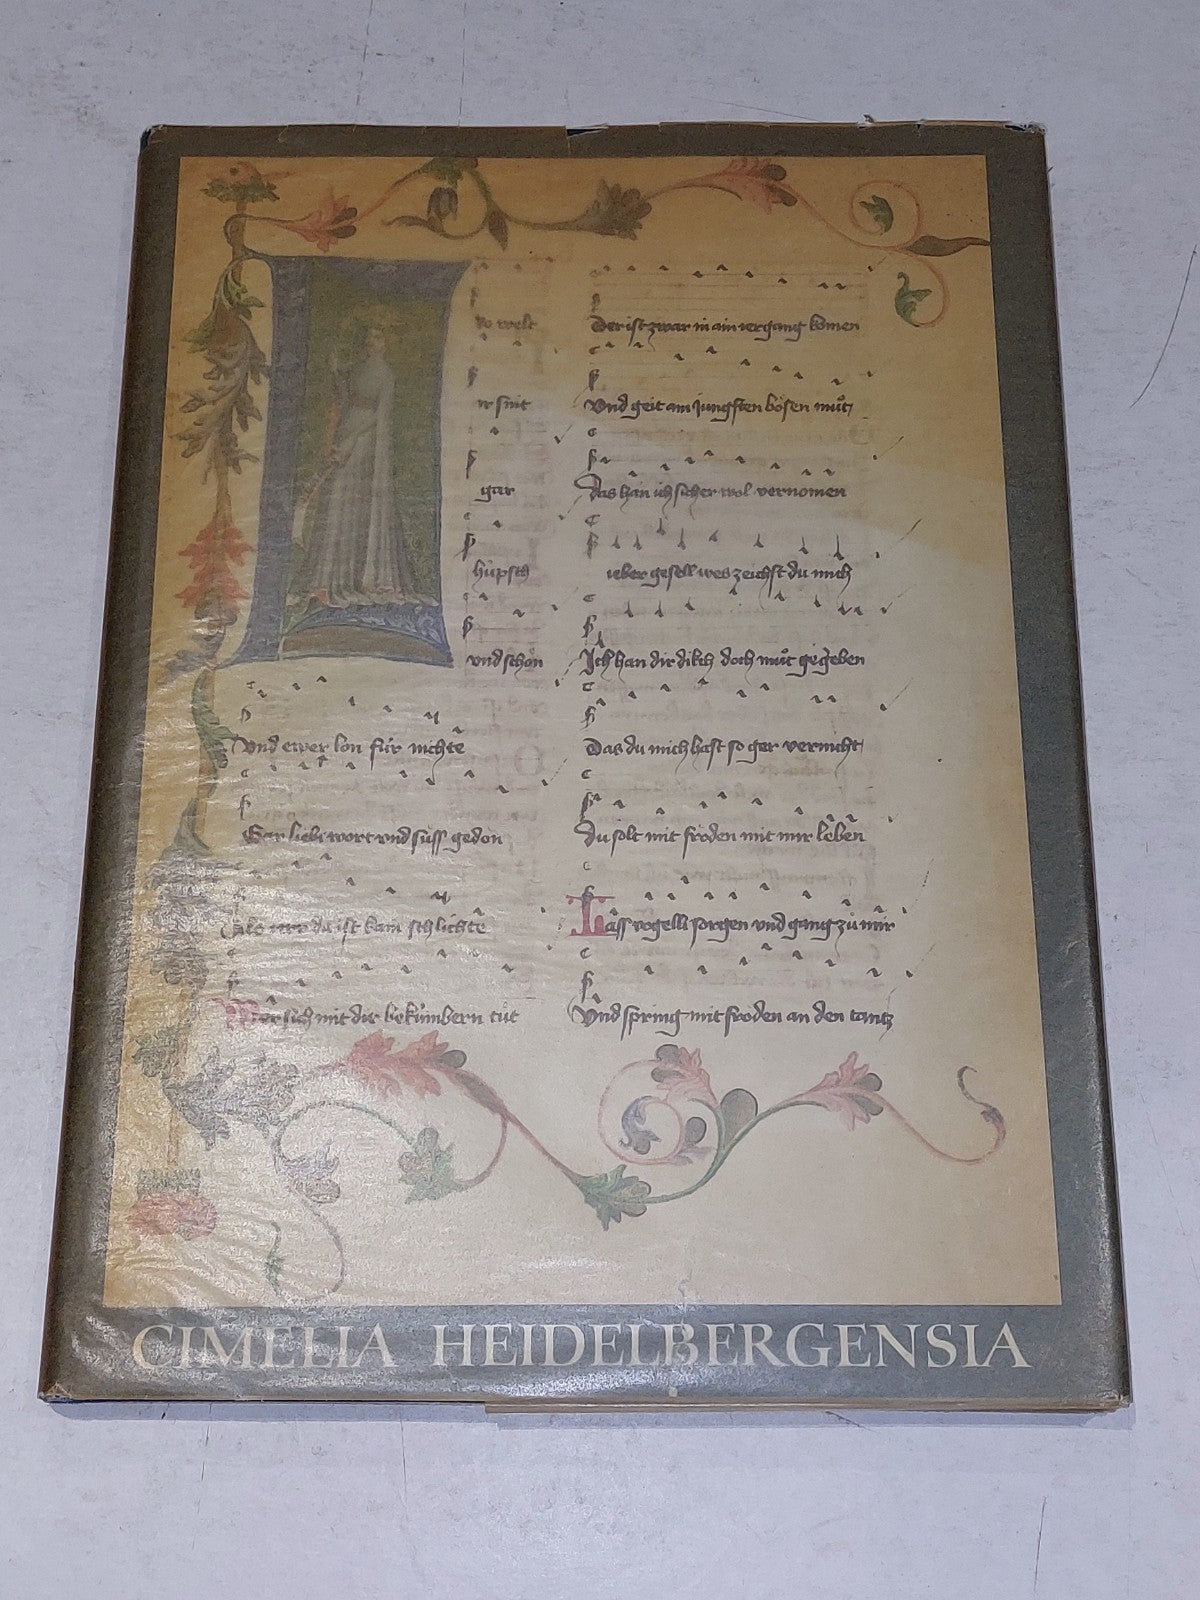 welt
ir sint
gar
hüpsch
vnd schön
Vnd ewer lon für nichte
Gar liebi wort vnd süss gedon
da ist kain schlichte
Wer sich mit dir bekümbern tůt
Der ist zwar in ain vergang komen
Vnd geit am jungsten bösen můt
das han ich sicher wol vernomen
lieber gesell wes zeichst du mich
Ich han dir dikch doch můt gegeben
Das du mich hast so gar vernicht
du solt mit fröden mit mir leben
Lass vögelli sorgen vnd gang zů mir
Vnd spring mit fröden an den tantz
CIMELIA HEIDELBERGENSIA